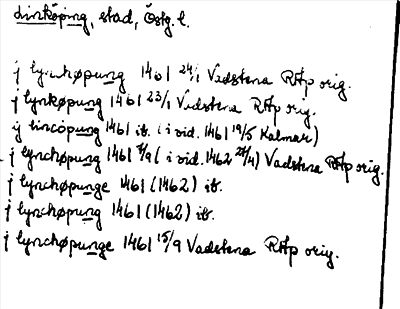 Linköping, stad, Östg. l.
j lynchøpung 1461 24/1 Vadstena RAp orig.
j lynkøpung 1461 23/1 Vadstena RAp orig.
ij lincopung 1461 ib. (i vid. 1461 19/5 Kalmar)
j lynchøpung 1461 /9 (i vid. 1462 24/4) Vadstena RAp orig.
j lynchøpunge 1461 (1462) ib.
j lynchøpung 1461 (1462) ib.
j lynchøpunge 1461 15/9 Vadstena RAp orig.